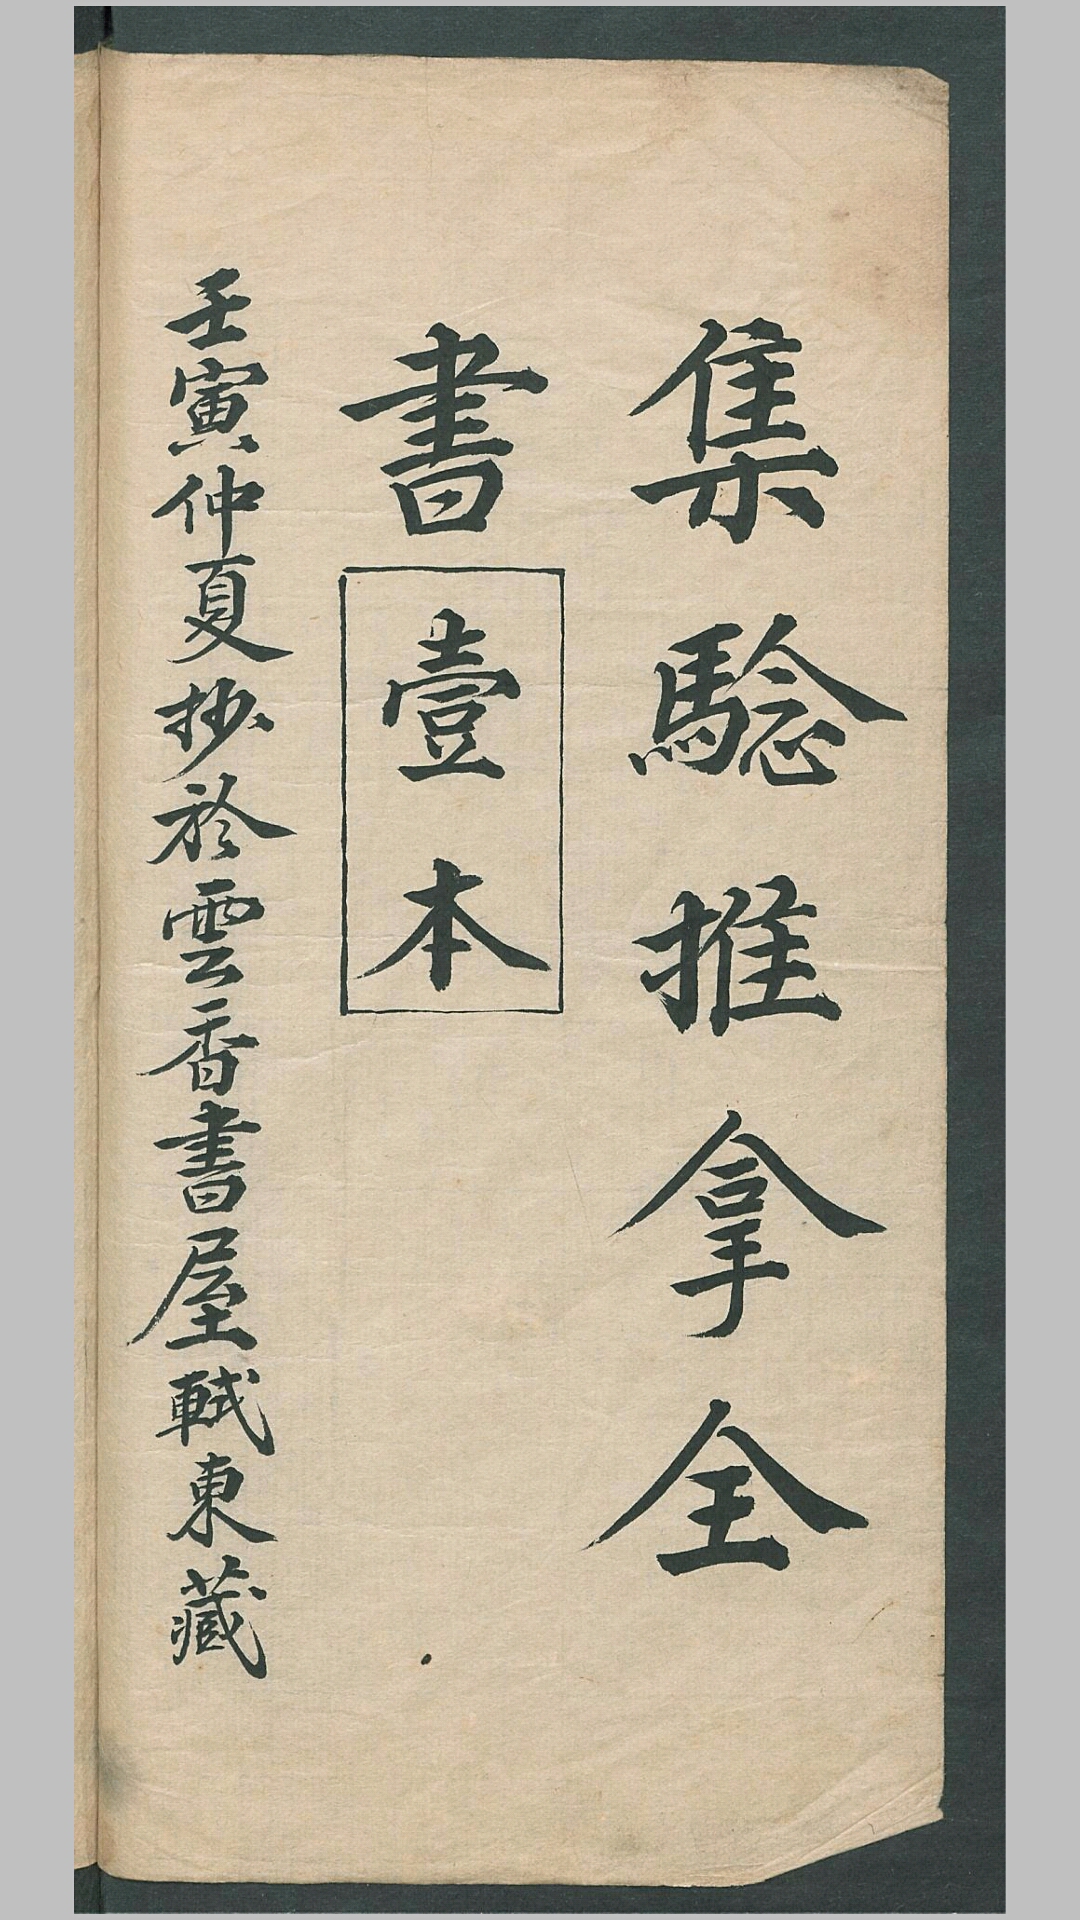 集騐推拿全
書壹本
壬寅仲夏抄於雲香書屋軾東藏